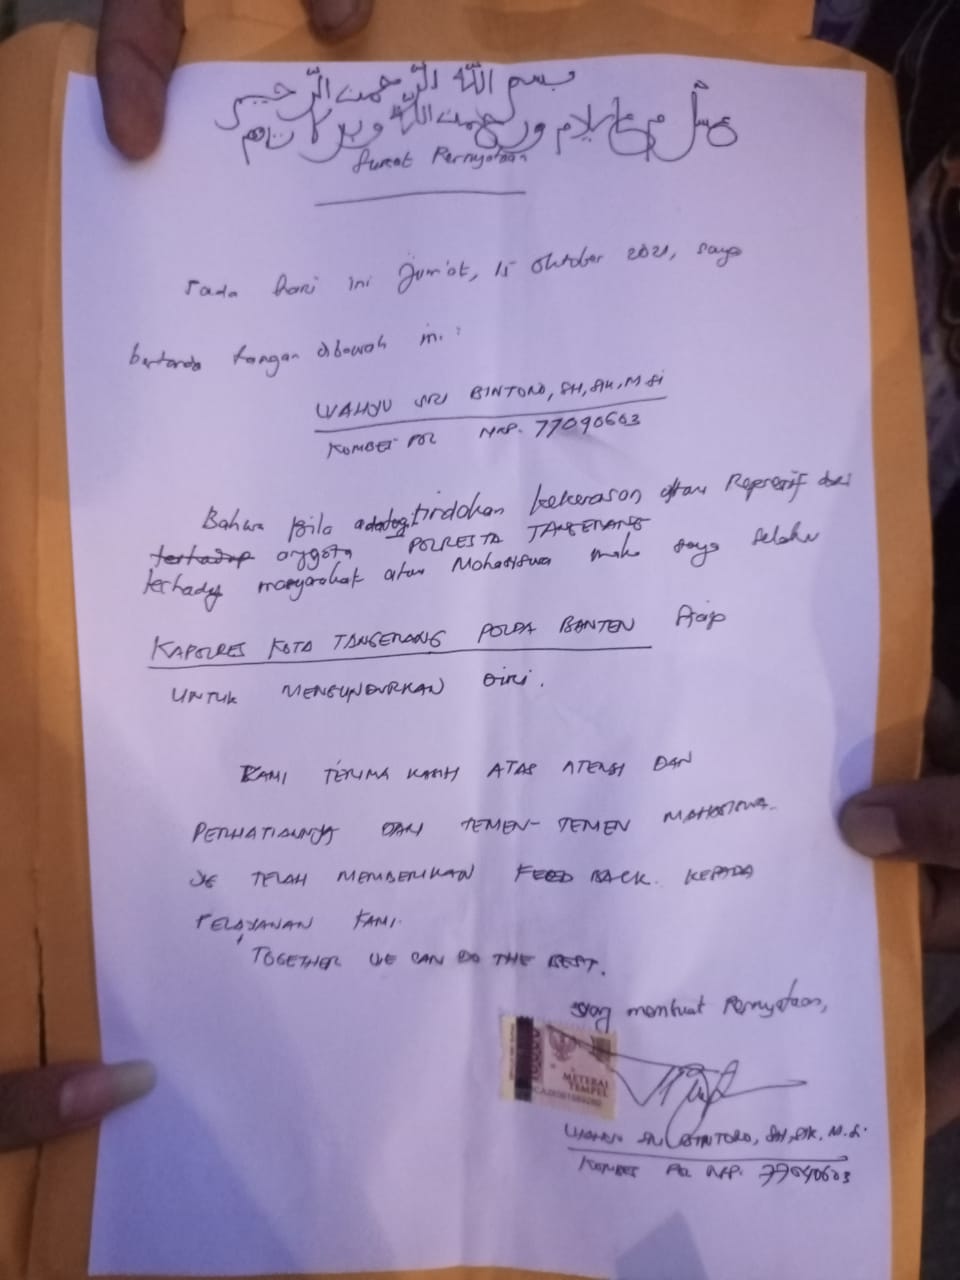 بسم الله الرحمن الرحيم
السلام عليكم ورحمت الله وبركاته
Surat Pernyataan
Pada hari ini Jum'at, 15 Oktober 2021, saya
bertanda tangan dibawah ini :
WAHYU SRI BINTORO, SH, SIK, M.Si
KOMBES POL NRP. 77090603
Bahwa bila tindakan kekerasan atau Represif dari
terhadap anggota POLRESTA TANGERANG
terhadap masyarakat atau Mahasiswa maka saya selaku
KAPOLRES KOTA TANGERANG POLDA BANTEN siap
UNTUK MENGUNDURKAN DIRI.
KAMI TERIMA KASIH ATAS ATENSI DAN
PERHATIANNYA DARI TEMEN-TEMEN MAHASISWA.
YG TELAH MEMBERIKAN FEED BACK. KEPADA
PELAYANAN KAMI.
TOGETHER WE CAN DO THE BEST.
yang membuat Pernyataan,
METERAI
TEMPEL
WAHYU SRI BINTORO, SH, SIK, M.Si
KOMBES POL NRP. 77090603